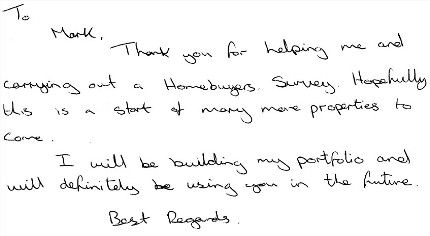 To
Mark,
Thank you for helping me and
carrying out a Homebuyers. Survey. Hopefully
this is a start of many more properties to
come.
I will be building my portfolio and
will definitely be using you in the future.
Best Regards.